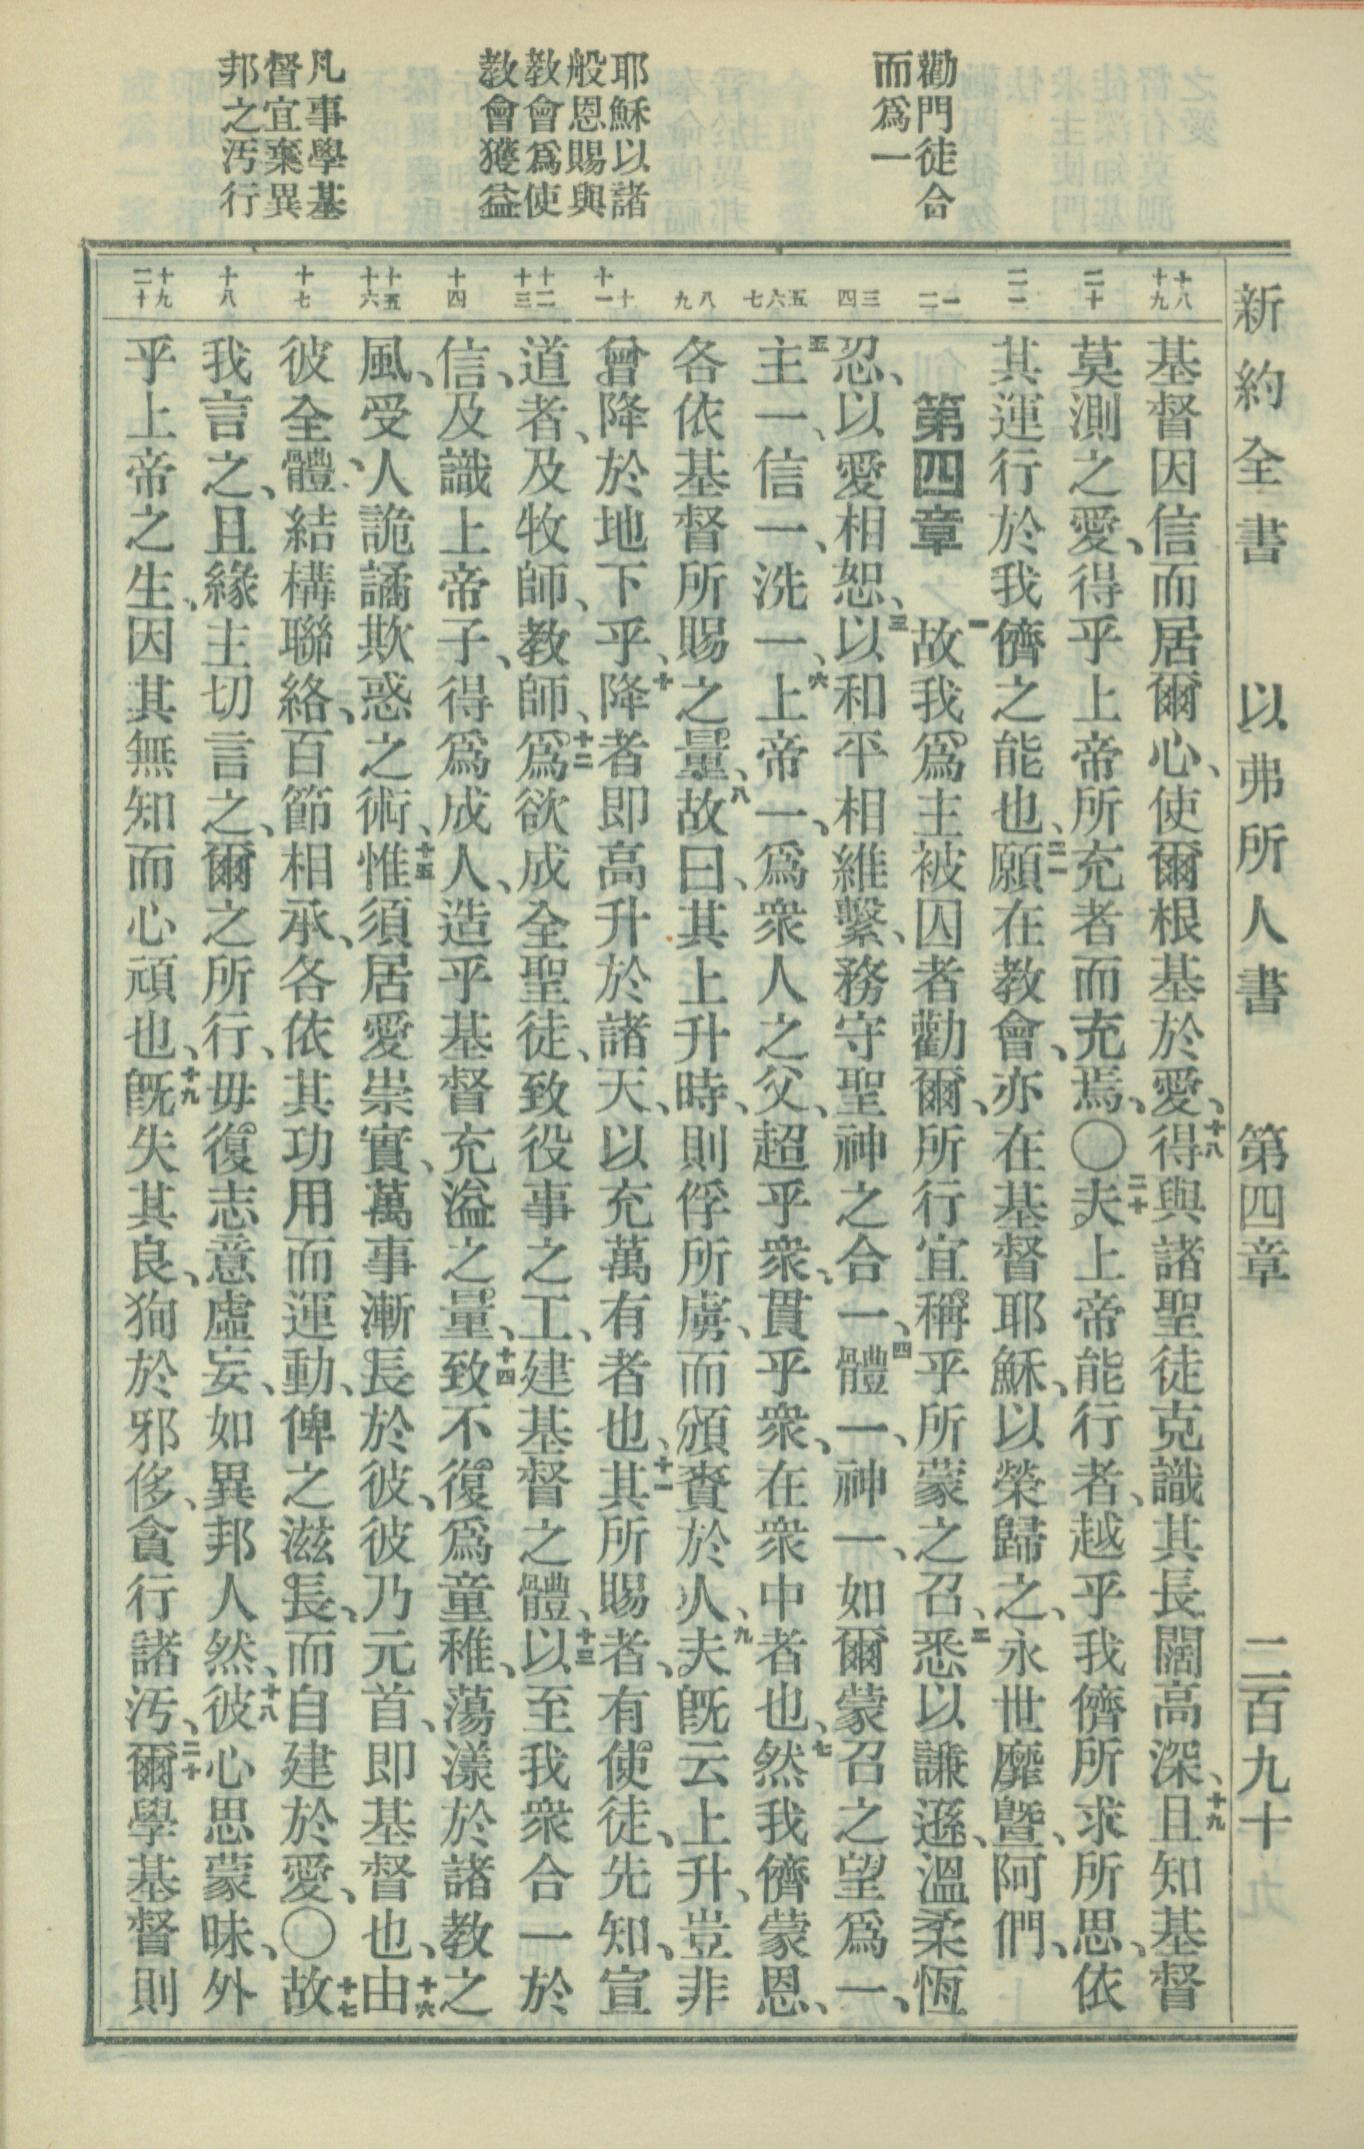 新約全書　以弗所人書　第四章　二百九十
勸門徒合
而爲一
耶穌以諸
般恩賜與
教會爲使
教會獲益
凡事學基
督宜棄異
邦之污行
十八 十九
二十
二一
一 二
三 四
五 六 七
八 九
十 十一
十二 十三
十四
十五 十六
十七
十八
十九 二十
基督因信而居爾心、使爾根基於愛、十八得與諸聖徒克識其長闊高深、十九且知基督
莫測之愛、得乎上帝所充者而充焉、〇二十夫上帝能行者、越乎我儕所求所思、依
其運行於我儕之能也、二一願在教會、亦在基督耶穌、以榮歸之、永世靡曁、阿們、
第四章　一故我爲主被囚者勸爾、所行宜稱乎所蒙之召、二悉以謙遜、溫柔恆
忍、以愛相恕、三以和平相維繫、務守聖神之合一、四體一、神一、如爾蒙召之望爲一、
五主一、信一、洗一、六上帝一、爲衆人之父、超乎衆、貫乎衆、在衆中者也、七然我儕蒙恩、
各依基督所賜之量、八故曰、其上升時、則俘所虜、而頒賚於人、九夫旣云上升、豈非
曾降於地下乎、十降者即高升於諸天、以充萬有者也、十一其所賜者、有使徒、先知、宣
道者、及牧師、教師、十二爲欲成全聖徒、致役事之工、建基督之體、十三以至我衆合一於
信、及識上帝子、得爲成人、造乎基督充溢之量、十四致不復爲童稚、蕩漾於諸教之
風、受人詭譎欺惑之術、十五惟須居愛崇實、萬事漸長於彼、彼乃元首、即基督也、十六由
彼全體、結構聯絡、百節相承、各依其功用而運動、俾之滋長、而自建於愛、〇十七故
我言之、且緣主切言之、爾之所行、毋復志意虛妄、如異邦人然、十八彼心思蒙昧、外
乎上帝之生、因其無知而心頑也、十九旣失其良、狥於邪侈、貪行諸污、二十爾學基督則